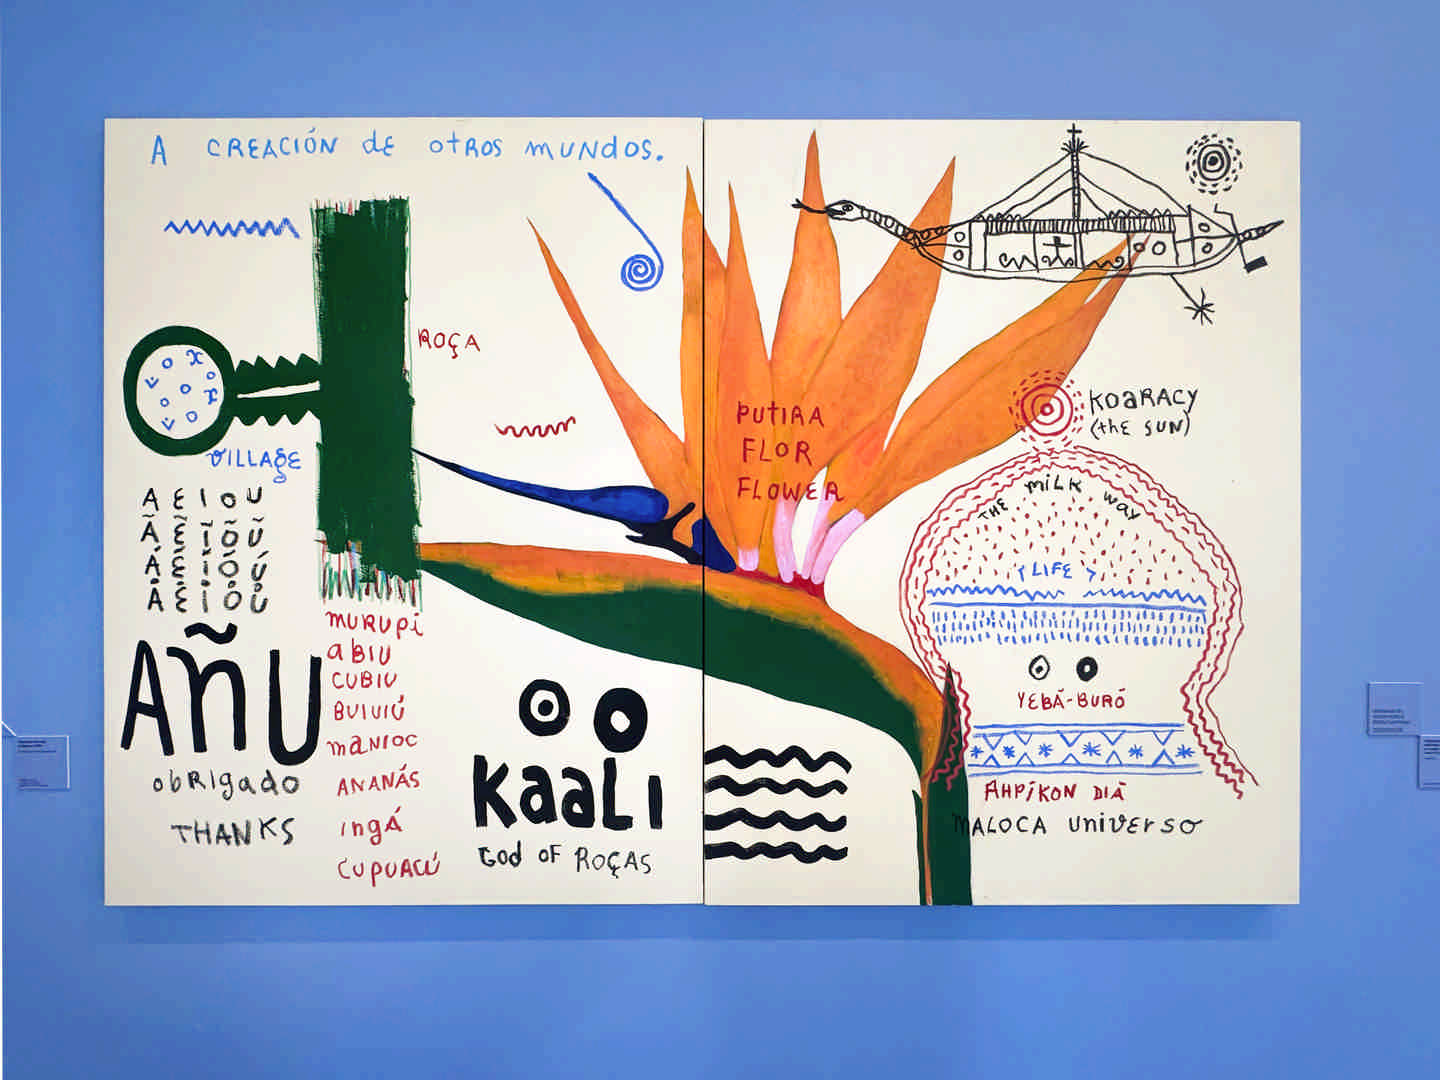 A CREACIÓN DE OTROS MUNDOS.
ROÇA
VILLAGE
A E I O U
Ã Ẽ Ĩ Õ Ũ
Á É Í Ó Ú
Å E̊ I̊ O̊ Ů
AÑU
OBRIGADO
THANKS
MURUPÍ
ABIU
CUBIU
BUIUIÚ
MANIOC
ANANÁS
INGÁ
CUPUACÚ
KAALI
GOD OF ROÇAS
PUTIRA
FLOR
FLOWER
KOARACY
(THE SUN)
THE MILK WAY
LIFE
YEBÁ-BURÓ
AHPÍKON DIÁ
MALOCA UNIVERSO